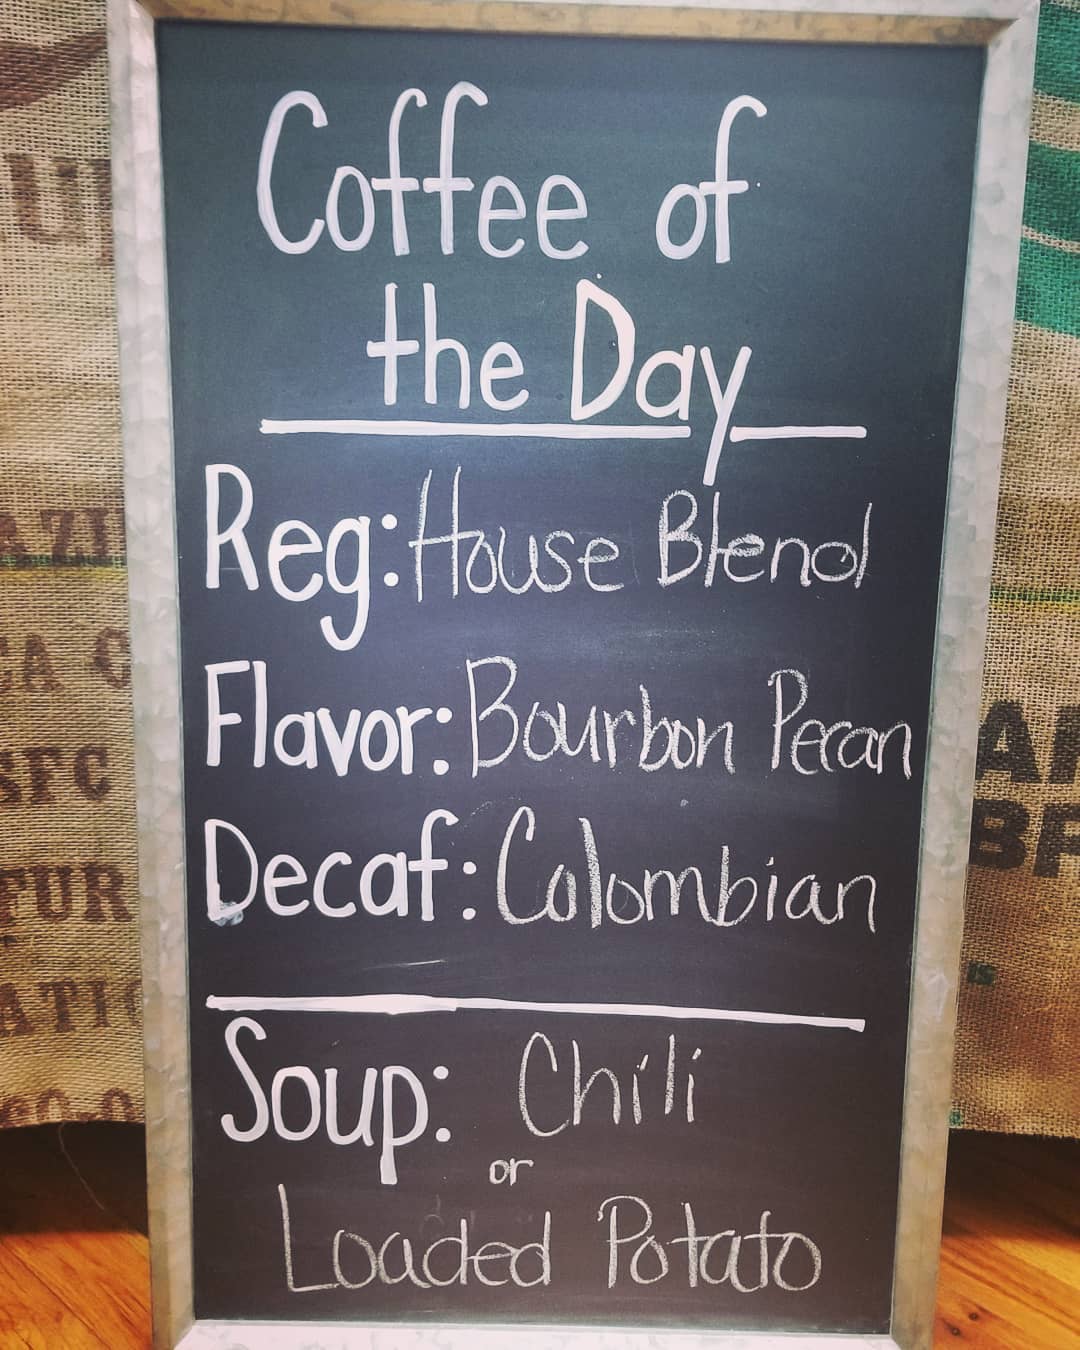 Coffee of
the Day
Reg: House Blend
Flavor: Bourbon Pecan
Decaf: Colombian
Soup: Chili
or
Loaded Potato
SFC
FUR